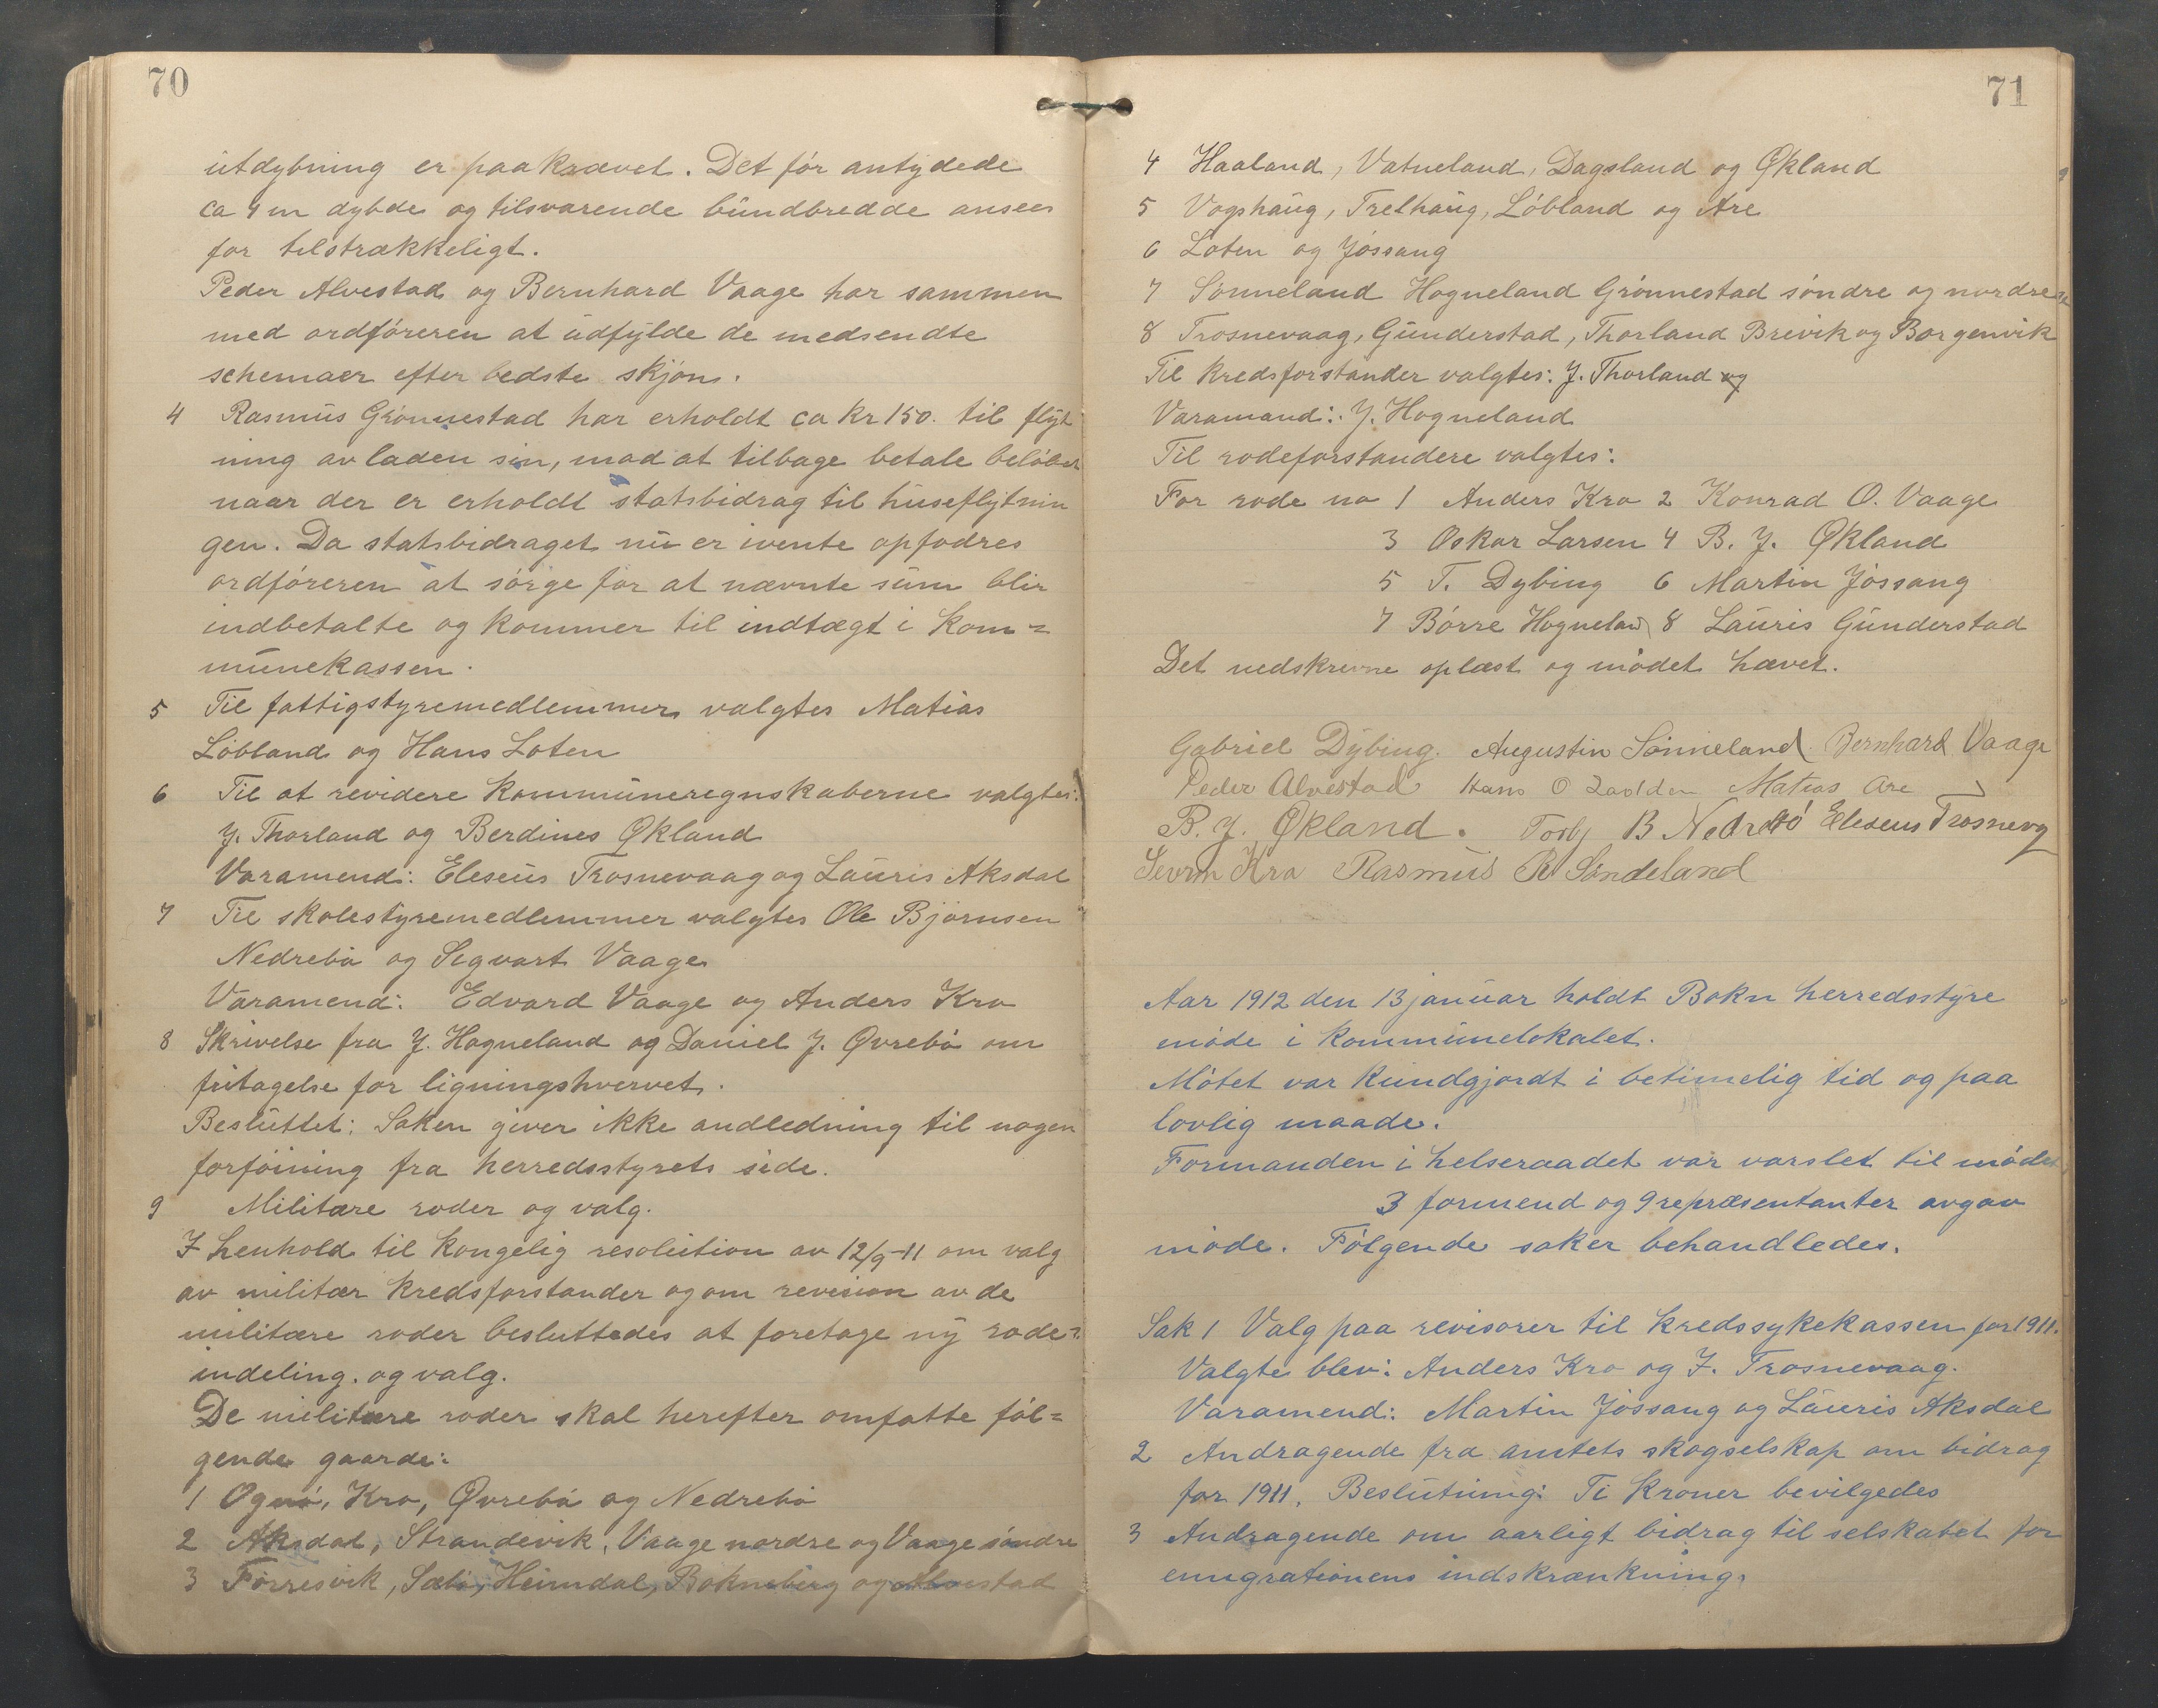 70
utdybning er paakrævet. Det før antydede
ca 4 m dybde og tilsvarende bundbredde ansees
for tilstrækkeligt.
Peder Alvestad og Bernhard Vaage har sammen
med ordføreren at udfylde de medsendte
schemaer efter bedste skjøn.
4 Rasmus Grønnestad har erholdt ca kr 150. til flyt
ning av laden sin, mod at tilbage betale beløbet
naar der er erholdt statsbidrag til huseflytnin
gen. Da statsbidraget nu er ivente opfodres
ordføreren at sørge for at nævnte sum blir
indbetalte og kommer til indtægt i kom=
munekassen.
5 Til fattigstyremedlemmer valgtes Matias
Løbland og Hans Loten
6 Til at revidere kommuneregnskaberne valgtes:
J. Thorland og Berdines Økland
Varamend: Eleseus Trosnevaag og Lauris Aksdal
7 Til skolestyremedlemmer valgtes Ole Bjørnsen
Nedrebø og Sigvart Vaage
Varamend: Edvard Vaage og Anders Kro
8 Skrivelse fra J. Hogneland og Daniel J. Øvrebø om
fritagelse for ligningshvervet.
Besluttet: Saken giver ikke andledning til nogen
forføining fra herredsstyrets side.
9 Militære roder og valg.
I henhold til kongelig resolution av 12/9-11 om valg
av militær kredsforstander og om revision av de
militære roder besluttedes at foretage ny rode=
indeling. og valg.
De militære roder skal herefter omfatte føl=
gende gaarde:
1 Ognø, Kro, Øvrebø og Nedrebø
2 Aksdal, Strandevik, Vaage nordre og Vaage søndre
3 Førresvik, Sæbø, Heimdal, Bokneberg og Alvestad
71
4 Haaland, Vatneland, Dagsland og Økland
5 Vogshaug, Trethaug, Løbland og Are
6 Loten og Jøssang
7 Sønneland Hogneland Grønnestad søndre og nordre
8 Trosnevaag, Gunderstad, Thorland Brevik og Borgenvik
Til kredsforstander valgtes: J. Thorland og
Varamand: J. Hogneland
Til rodeforstandere valgtes:
For rode no 1 Anders Kro 2 Konrad O. Vaage
3 Oskar Larsen 4 B. J. Økland
5 T. Dybing 6 Martin Jøssang
7 Børre Hognelan 8 Lauris Gunderstad
Det nedskrevne oplæst og mødet hævet.
Gabriel Dybing. Augustin Sønneland. Bernhard Vaage
Peder Alvestad Hans O Matias Are
B. J. Økland. Torbj B Nedrebø Eleseus Trosnevg
Sevrin Kro Rasmus R Søndeland
Aar 1912 den 13 januar holdt Bokn herredsstyre
møde i kommunelokalet.
Møtet var kundgjordt i betimelig tid og paa
lovlig maade.
Formanden i helseraadet var varslet til mødet
3 formend og 9 repræsentanter avgav
møde. Følgende saker behandledes.
Sak 1 Valg paa revisorer til kredssykekassen for 1911.
Valgte blev: Anders Kro og I. Trosnevaag.
Varamend: Martin Jøssang og Lauris Aksdal
2 Andragende fra amtets skogselskap om bidrag
for 1911. Beslutning: Ti kroner bevilgedes
3 Andragende om aarligt bidrag til selskabet for
emigrationens indskrænkning.